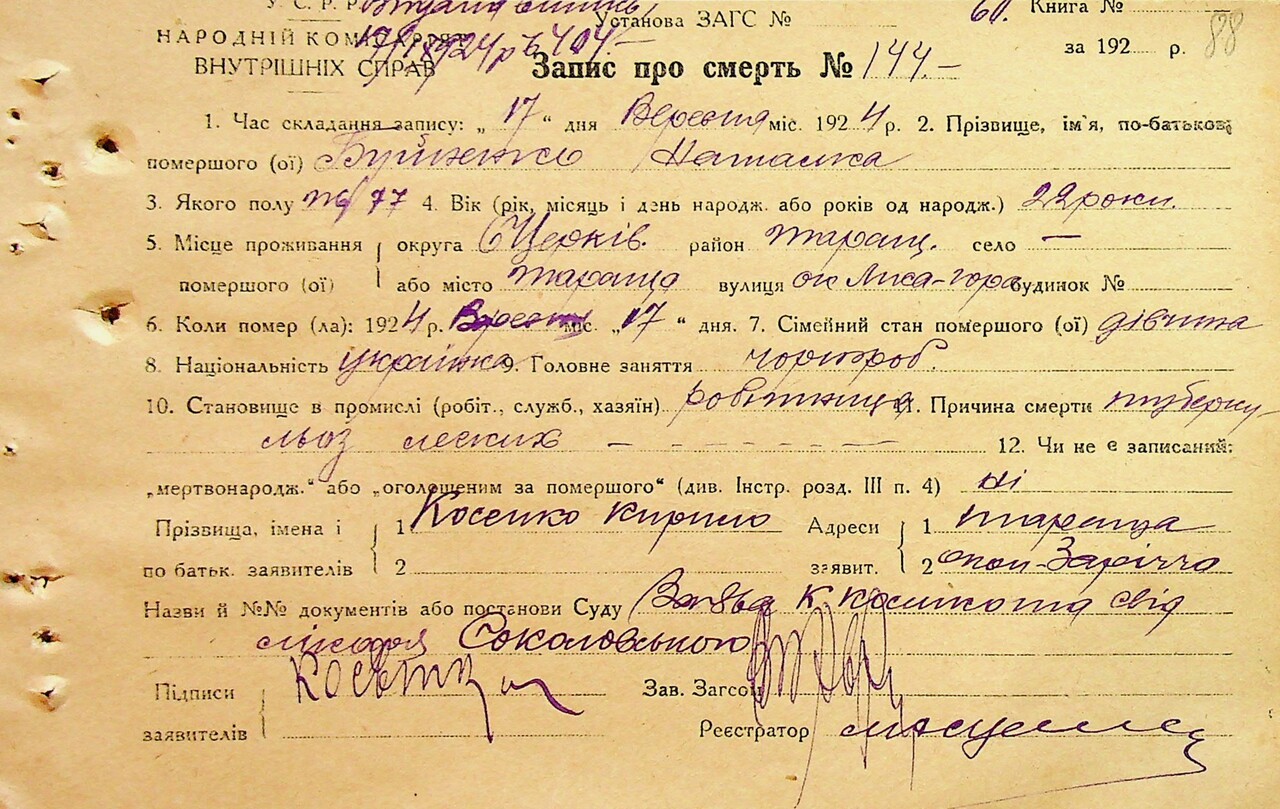 У. С. Р. Р. Установа ЗАГС № 60. Книга №
НАРОДНІЙ КОМІСАРІЯТ за 192 р. 88
ВНУТРІШНІХ СПРАВ Запис про смерть № 144.—
1. Час складання запису: „ 17 “ дня Вересня міс. 1924 р. 2. Прізвище, ім'я, по-батькові
помершого (ої) Наталка
3. Якого полу ж 4. Вік (рік, місяць і день народж. або років од народж.) 22 роки.
5. Місце проживання округа БЦерків. район Таращ. село —
помершого (ої) або місто Тараща вулиця ок Лиса-гора будинок №
6. Коли помер (ла): 1924 р. Вересня міс. „ 17 “ дня. 7. Сімейний стан помершого (ої) дівчина
8. Національність українка 9. Головне заняття чорнороб.
10. Становище в промислі (робіт., служб., хазяїн) робітниця 11. Причина смерти туберку-
льоз легких — — — — — — 12. Чи не є записаний:
„мертвонародж.“ або „оголошеним за помершого“ (див. Інстр. розд. III п. 4) ні
Прізвища, імена і 1 Косенко Кирило Адреси 1 Тараща
по батьк. заявителів 2 заявит. 2 окол-Заріччя
Назви й №№ документів або постанови Суду Заява К та свід
лікаря Соколовського
Підписи Зав. Загсом
заявителів Реєстратор